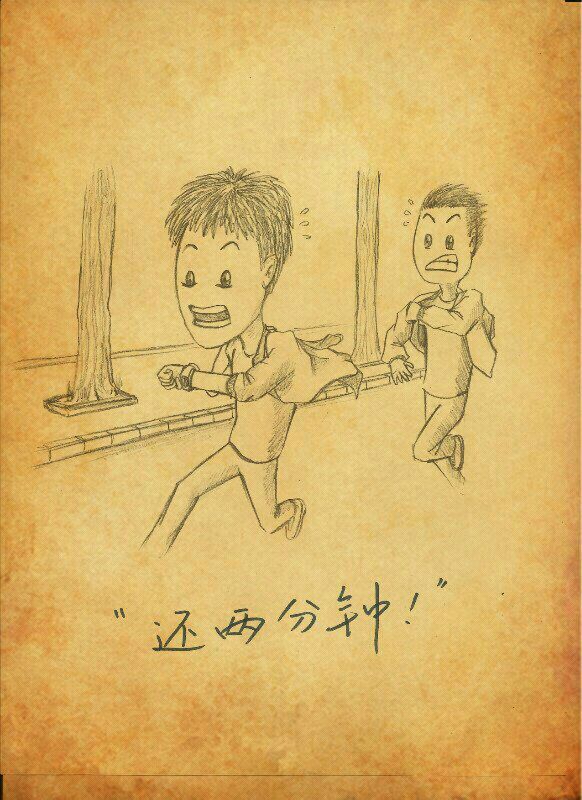 "还两分钟！"